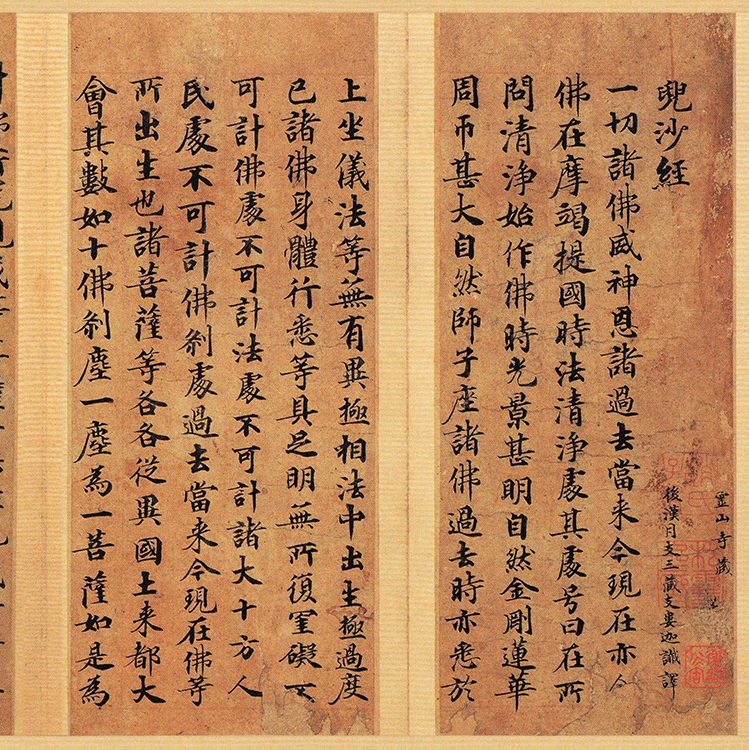 霊山寺藏
後漢月支三藏支婁迦讖譯
兜沙經
一切諸佛威神恩諸過去當来今現在亦尒
佛在摩竭提國時法清淨處其處号曰在所
問清淨始作佛時光景甚明自然金剛蓮華
周帀甚大自然師子座諸佛過去時亦悉於
上坐儀法等無有異極相法中出生極過度
已諸佛身體行悉等具足明無所復罣礙不
可計佛處不可計法處不可計諸大十方人
民處不可計佛剎處過去當来今現在佛等
所出生也諸菩薩等各各從異國土来都大
會其數如十佛剎塵一塵為一菩薩如是為